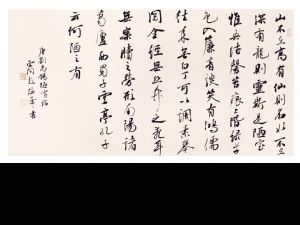 山不在高有仙則名水不在
深有龍則靈斯是陋室
惟吾德馨苔痕上階綠草
色入簾青談笑有鴻儒
往來無白丁可以調素琴
閱金經無絲竹之亂耳
無案牘之勞形南陽諸
葛廬西蜀子雲亭孔子
云何陋之有
唐劉禹錫陋室銘
書